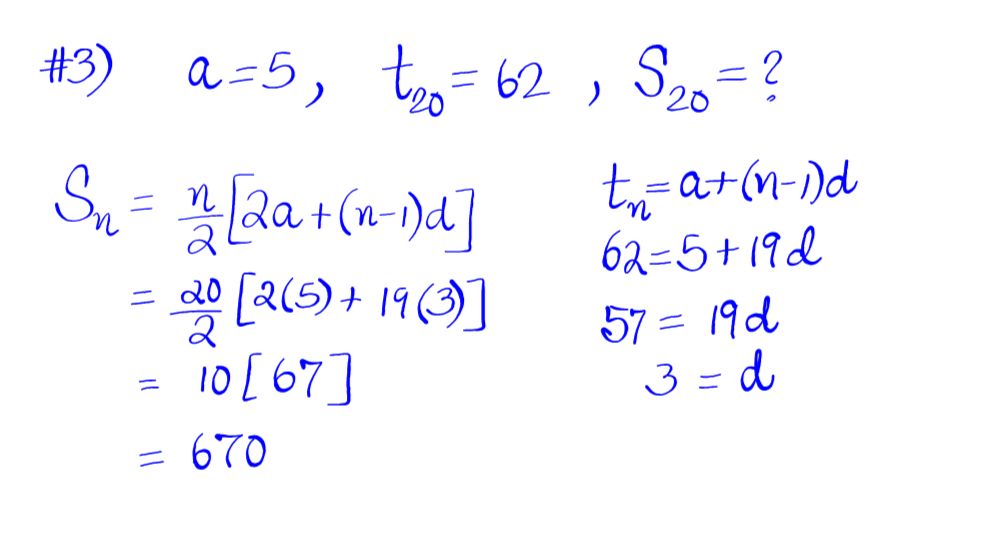 #3) a = 5, t₂₀ = 62, S₂₀ = ?
Sₙ = n/2 [2a + (n-1)d]
= 20/2 [2(5) + 19(3)]
= 10 [67]
= 670
tₙ = a + (n-1)d
62 = 5 + 19d
57 = 19d
3 = d